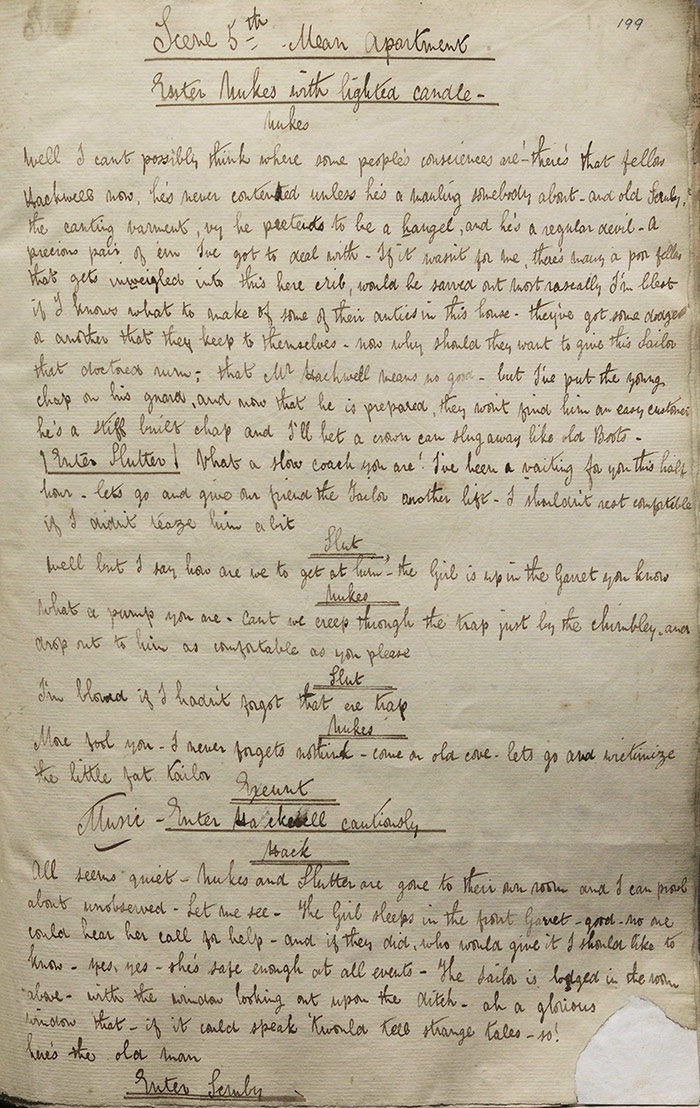 199
Scene 5th Mean Apartment
Enter Nukes with lighted candle -
Nukes
Well I cant possibly think where some people's consciences are - there's that fellow
Hackwell now, he's never contented unless he's a mauling somebody about - and old Scruby,
the canting varment, vy he pretends to be a hangel, and he's a regular devil - A
precious pair of 'em I've got to deal with - If it wasn't for me, there's many a poor fellow
that gets inweigled into this here crib, would be sarved out most rascally I'm blest
if I knows what to make of some of their antics in this house - they've got some dodge
or another that they keep to themselves - now why should they want to give this Sailor
that doctored rum; that Mr Hackwell means no good - but I've put the young
chap on his guard, and now that he is prepared, they won't find him an easy customer
he's a stiff built chap and I'll bet a crown can slug away like old Boots -
Enter Slutter What a slow coach you are! I've been a vaiting for you this half
hour - lets go and give our friend the Tailor another lift - I shouldn't rest comfortable
if I didn't teaze him a bit
Slut
Well but I say how are we to get at him - the Girl is up in the Garret you know
Nukes
What a pump you are - Cant we creep through the trap just by the chimbley, and
drop out to him as comfortable as you please
Slut
I'm blowed if I hadn't forgot that ere trap
Nukes
More fool you - I never forgets nothink - come on old cove - lets go and wictimize
the little fat tailor
Exeunt
Music - Enter Hackwell cautiously
Hack
All seems quiet - Nukes and Slutter are gone to their own room and I can prowl
about unobserved - Let me see - The Girl sleeps in the front Garret - good - no one
could hear her call for help - and if they did, who would give it I should like to
know - yes, yes - she's safe enough at all events - The Sailor is lodged in the room
above - with the window looking out upon the ditch - ah a glorious
window that - if it could speak 'twould tell strange tales - so!
here's the old man
Enter Scruby